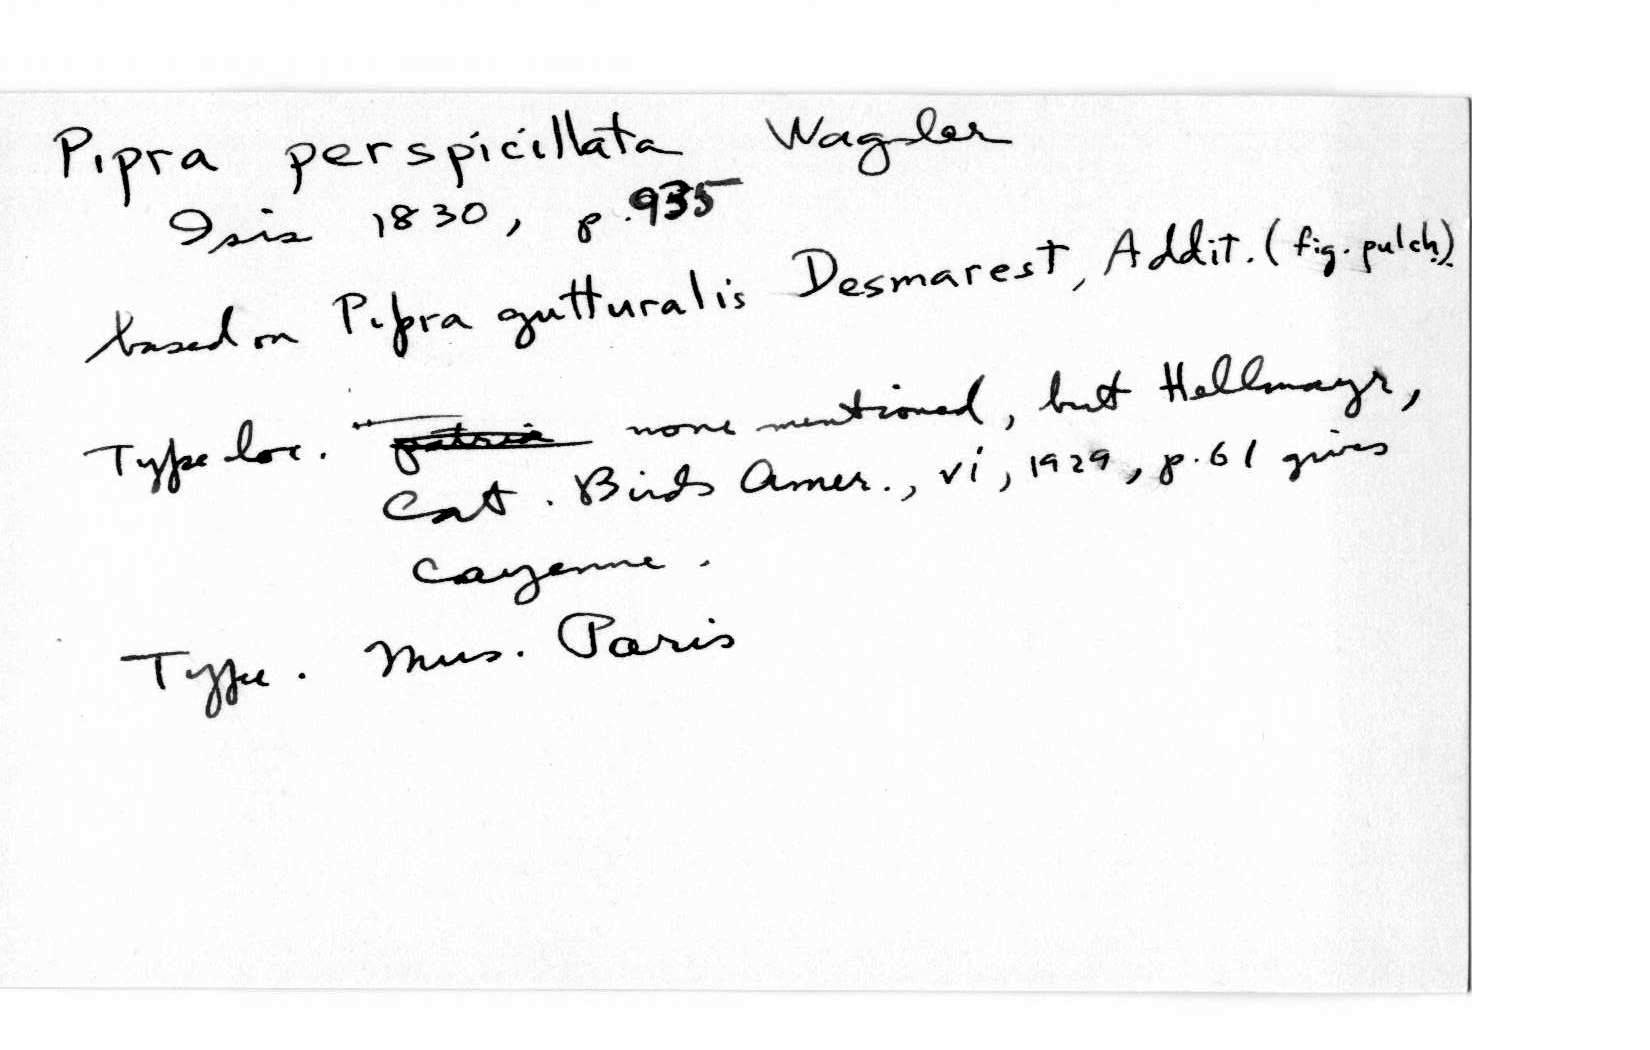 Pipra perspicillata Wagler
Isis 1830, p. 935
based on Pipra gutturalis Desmarest, Addit. (fig. pulch.)
Type loc. patria none mentioned, but Hellmayr,
Cat. Birds Amer., vi, 1929, p. 61 gives
Cayenne.
Type. Mus. Paris